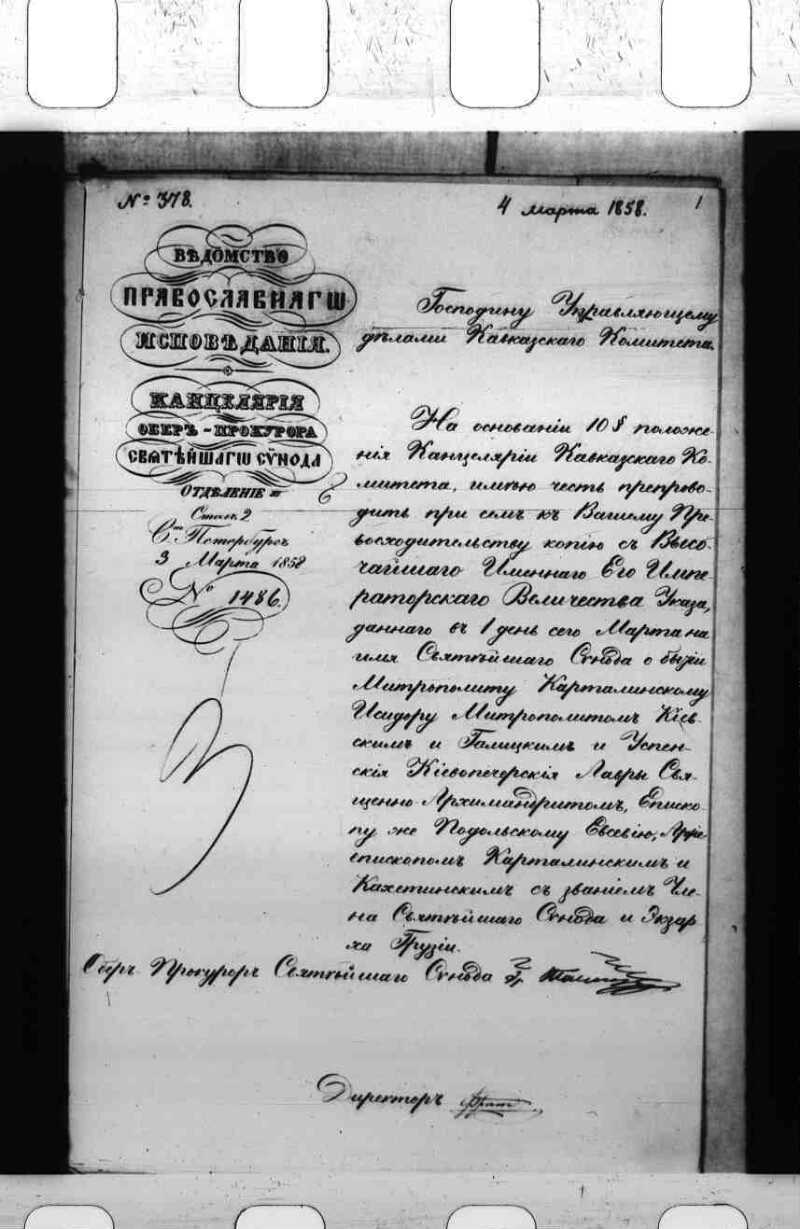 № 378.
4 марта 1858.
1
ВѢДОМСТВО
ПРАВОСЛАВНАГѠ
ИСПОВѢДАНІЯ.
КАНЦЕЛЯРІЯ
ОБЕРЪ-ПРОКУРОРА
СВѦТѢЙШАГѠ СѴНОДА
ОТДѢЛЕНІЕ
Столъ 2
С.т Петербургъ
3 Марта 1858
№ 1486.
Господину Управляющему
дѣлами Кавказскаго Комитета.
На основаніи 10 § положе-
нія Канцеляріи Кавказскаго Ко-
митета, имѣю честь препрово-
дить при семъ къ Вашему Пре-
восходительству копію съ Высо-
чайшаго Именнаго Его Импе-
раторскаго Величества Указа,
даннаго въ 1 день сего Марта на
имя Святѣйшаго Сѵнода о бытіи
Митрополиту Карталинскому
Исидору Митрополитомъ Кіев-
скимъ и Галицкимъ и Успен-
скія Кіевопечерскія Лавры Свя-
щенно-Архимандритомъ, Еписко-
пу же Подольскому Евсевію, Архі-
епископомъ Карталинскимъ и
Кахетинскимъ съ званіемъ Чле-
на Святѣйшаго Сѵнода и Экзар-
ха Грузіи.
Оберъ-Прокуроръ Святѣйшаго Сѵнода Гр. Толстой
Директоръ